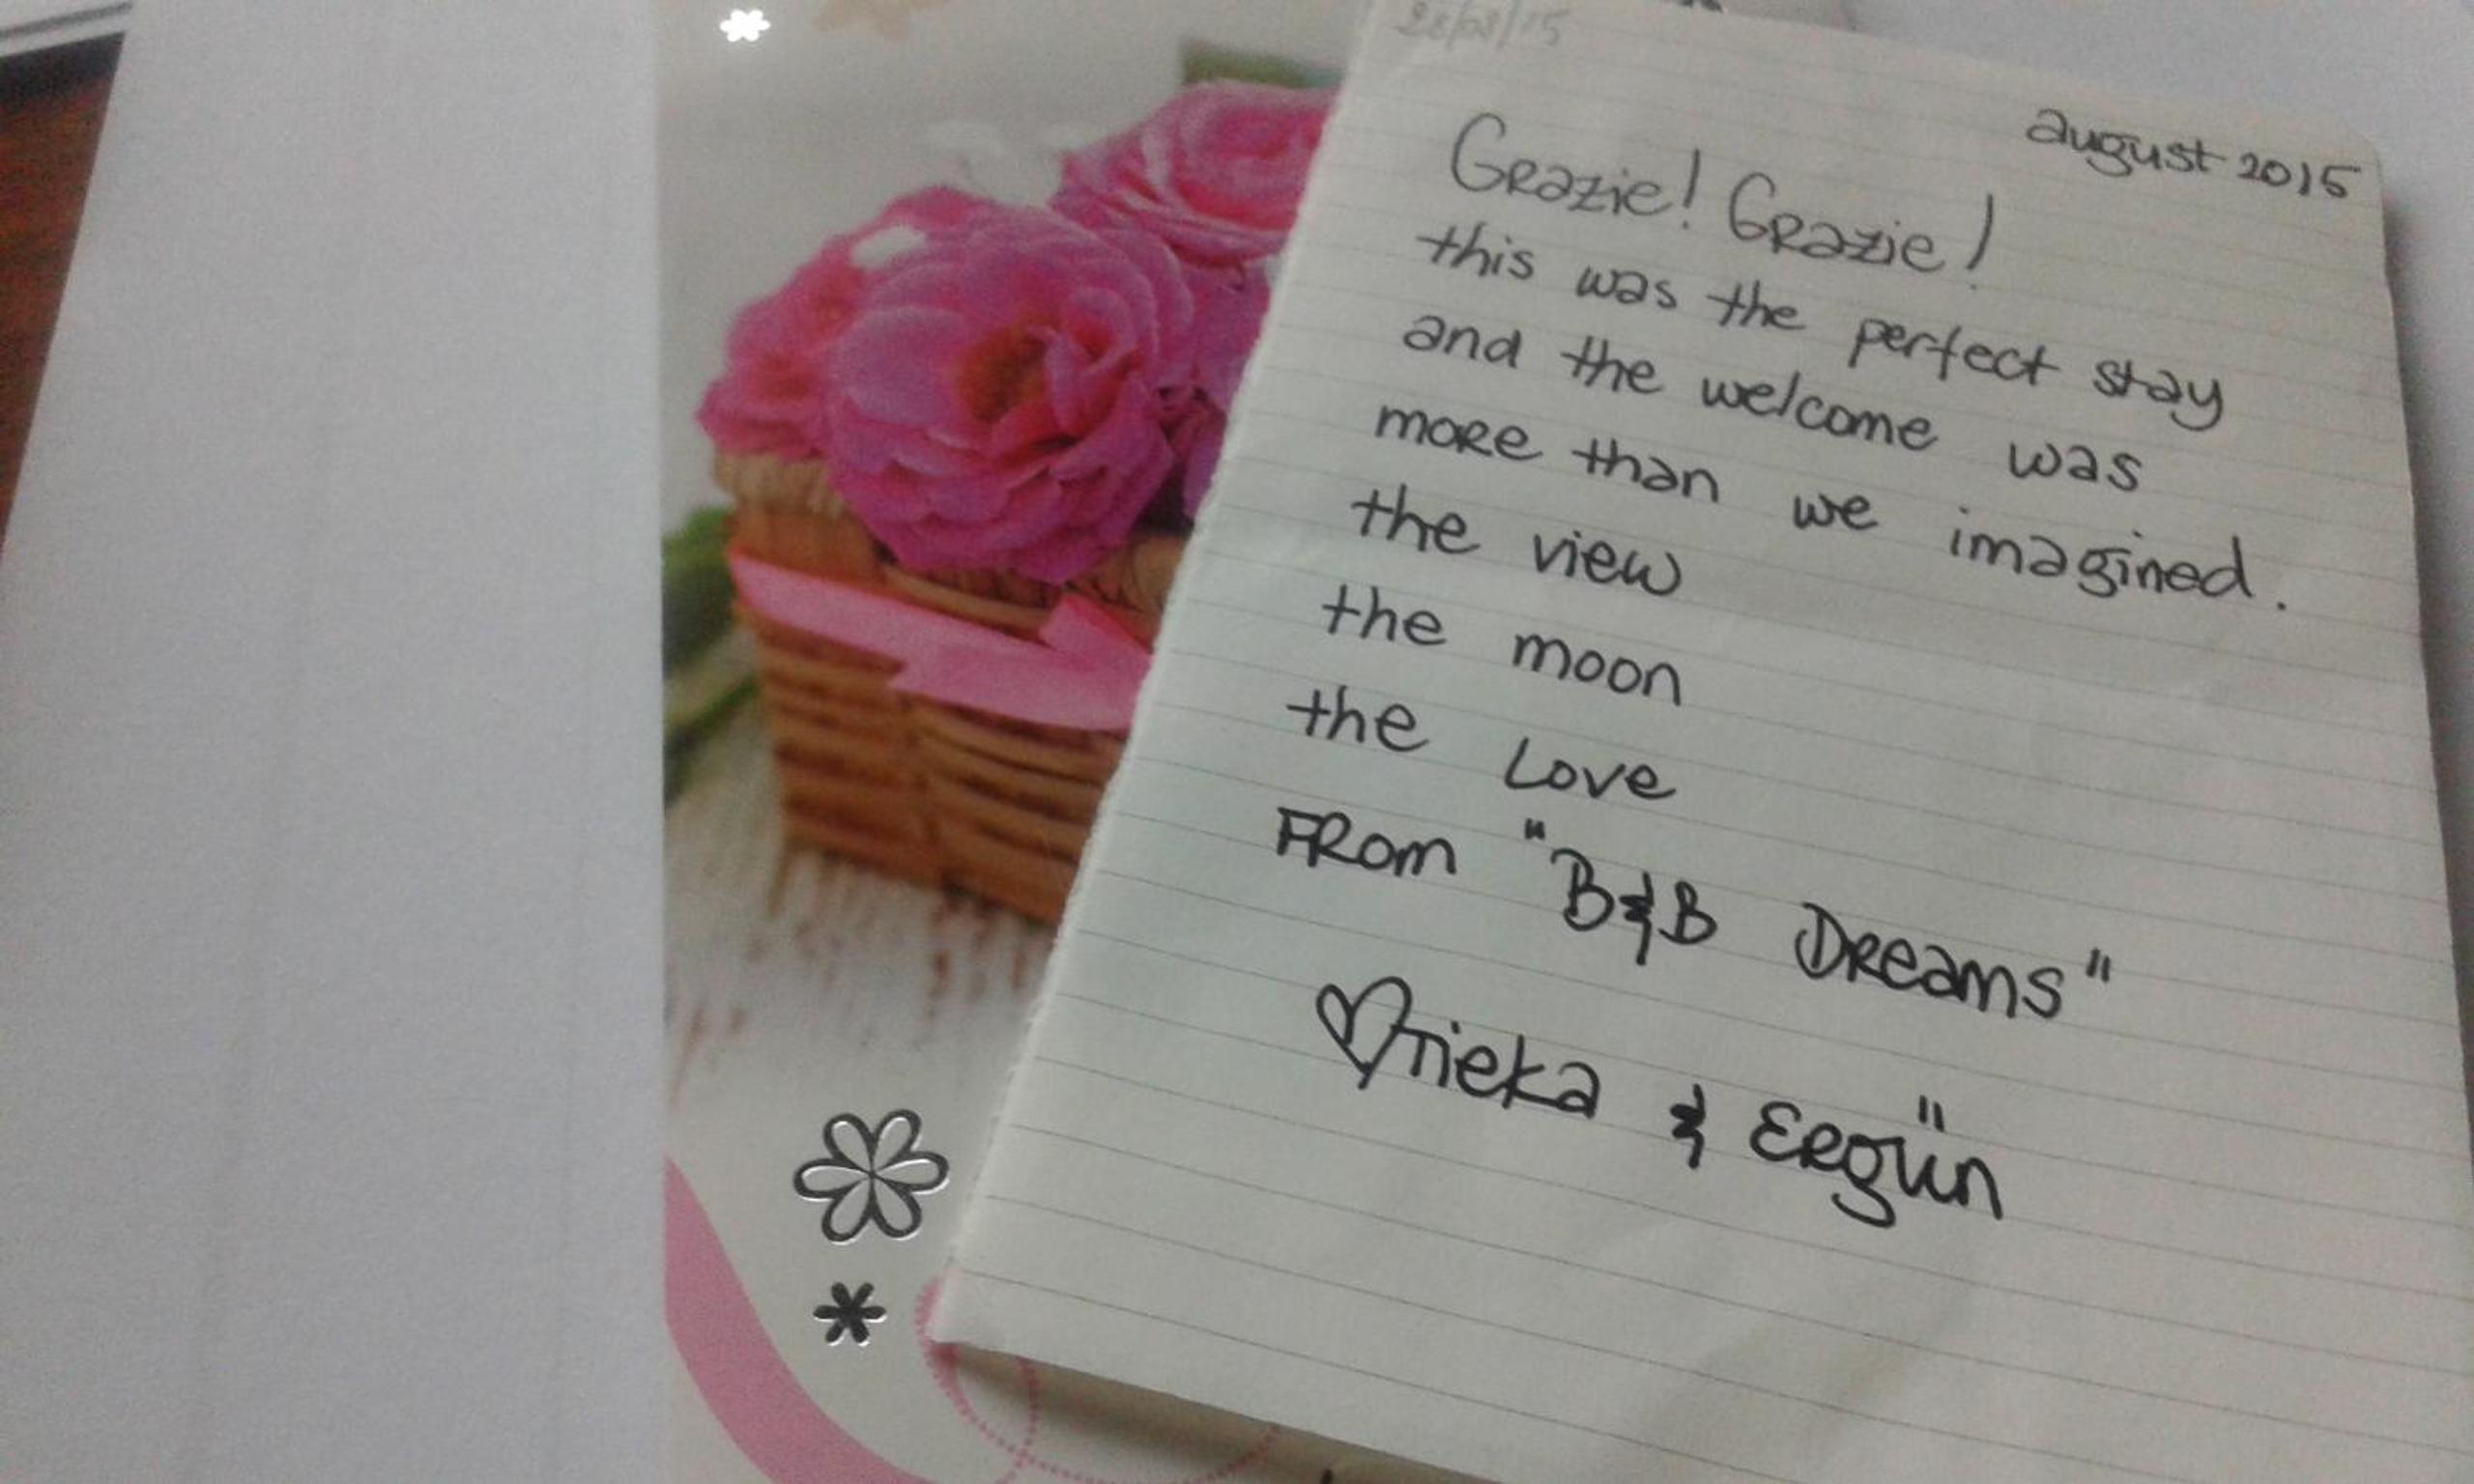 28/08/15
august 2015
Grazie! Grazie!
this was the perfect stay
and the welcome was
more than we imagined.
the view
the moon
the Love
From "B&B Dreams"
♡Tieka & Ergün